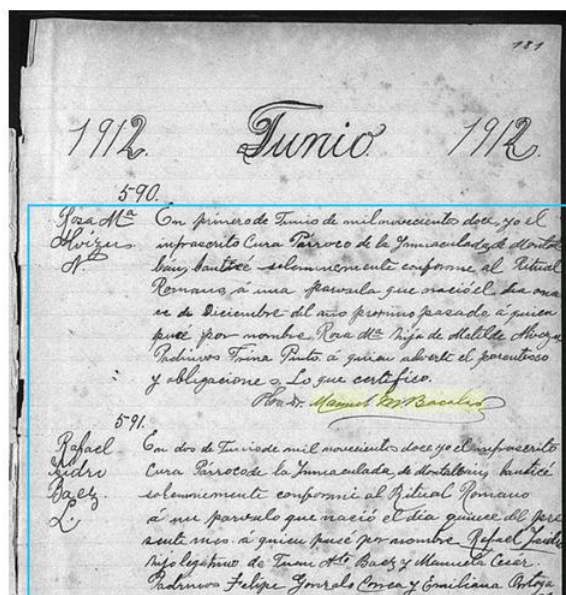 181
1912. Junio. 1912.
590.
Rosa Mª
Alvizus
N.
En primero de Junio de mil novecientos doce, yo el
infrascrito Cura Párroco de la Inmaculada, de Montal
bán, bauticé solemnemente conforme al Ritual
Romano, á una parvula que nació el dia once
de Diciembre del año proximo pasado á quien
puse por nombre Rosa Mª hija de Matilde
Padrinos Trina Pinto, á quien advertí el parentesco
y obligaciones. Lo que certifico.
Manuel
591.
Rafael
Isidro
Baez
L.
En dos de Junio de mil novecientos doce yo el infrascrito
Cura Párroco de la Inmaculada de Montalbán, bauticé
solemnemente conforme al Ritual Romano
á un parvulo que nació el día quince del pre
sente mes. á quien puse por nombre Rafael Isidro
hijo legítimo de Juan Baez y Manuela Cesár.
Padrinos Felipe Gonzalo Correa y Emiliana Ortega